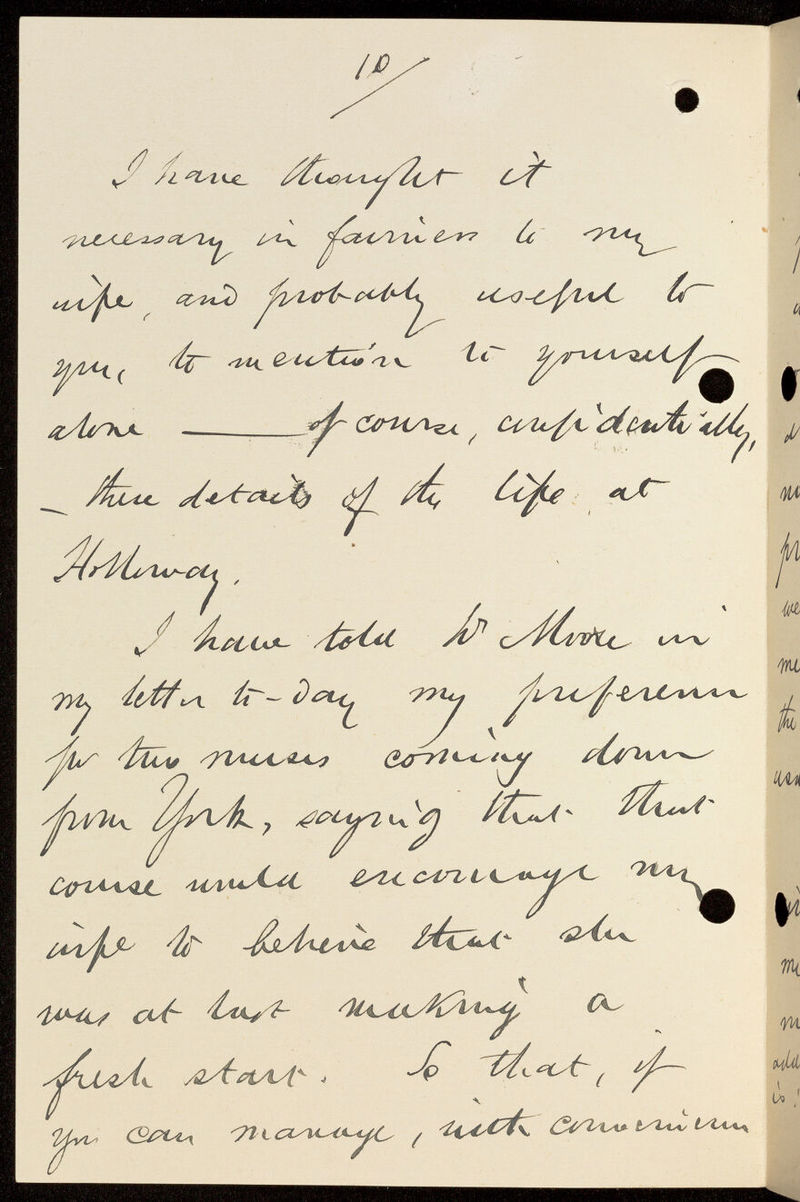 10/
I have thought it
necessary in fairness to my
wife, and probably useful to
you, to mention to yourself
alone —— of course, confidentially,
– these details of the life at
Holloway.
I have told Dr Moore in
my letter to-day my preference
for two nurses coming down
from York, saying that that
course would encourage my
wife to believe that she
was at last making a
fresh start. So that, if
you can manage, with convenience